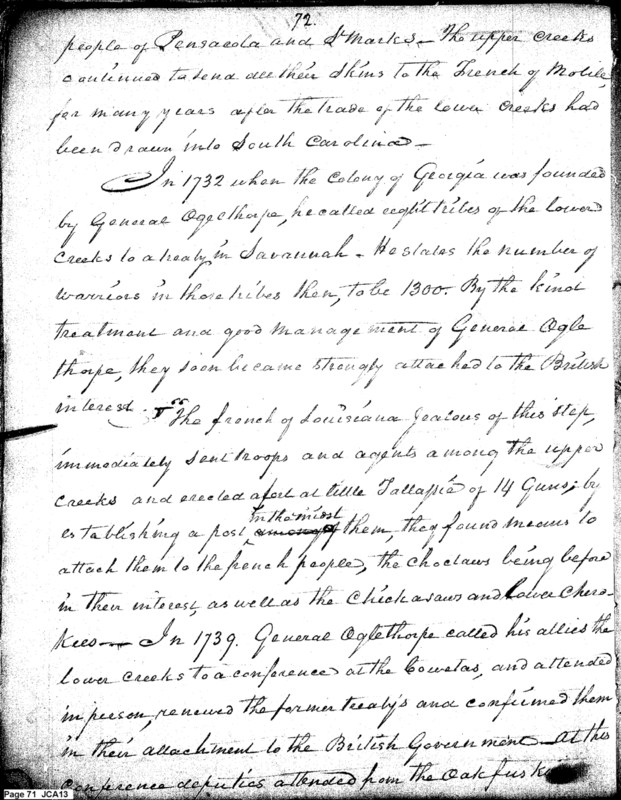 72.
people of Pensacola and St Marks — The upper creeks
continued to send all their skins to the French of Mobile,
for many years after the trade of the lower creeks had
been drawn into South Carolina —
In 1732 when the Colony of Georgia was founded
by General Ogelthorpe, he called eight tribes of the lower
creeks to a treaty in Savannah — He states the number of
warriors in those tribes then, to be 1300. By the kind
treatment and good management of General Ogle
thorpe, they soon became strongly attached to the British
interest.
The french of Louisiana Jealous of this step,
immediately sent troops and agents among the upper
creeks and erected a fort at little Tallassie of 14 Guns; by
establishing a post in the midst among of them, they found means to
attach them to the french people, the Choctaws being before
in their interest, as well as the Chickasaws and Lower Chero-
kees — In 1739. General Oglethorpe called his allies the
lower creeks to a conference at the Cowetas, and attended
in person, renewed the former treaty's and confirmed them
in their attachment to the British Government — At this
conference deputies attended from the Oakfuskies
Page 71 JCA13